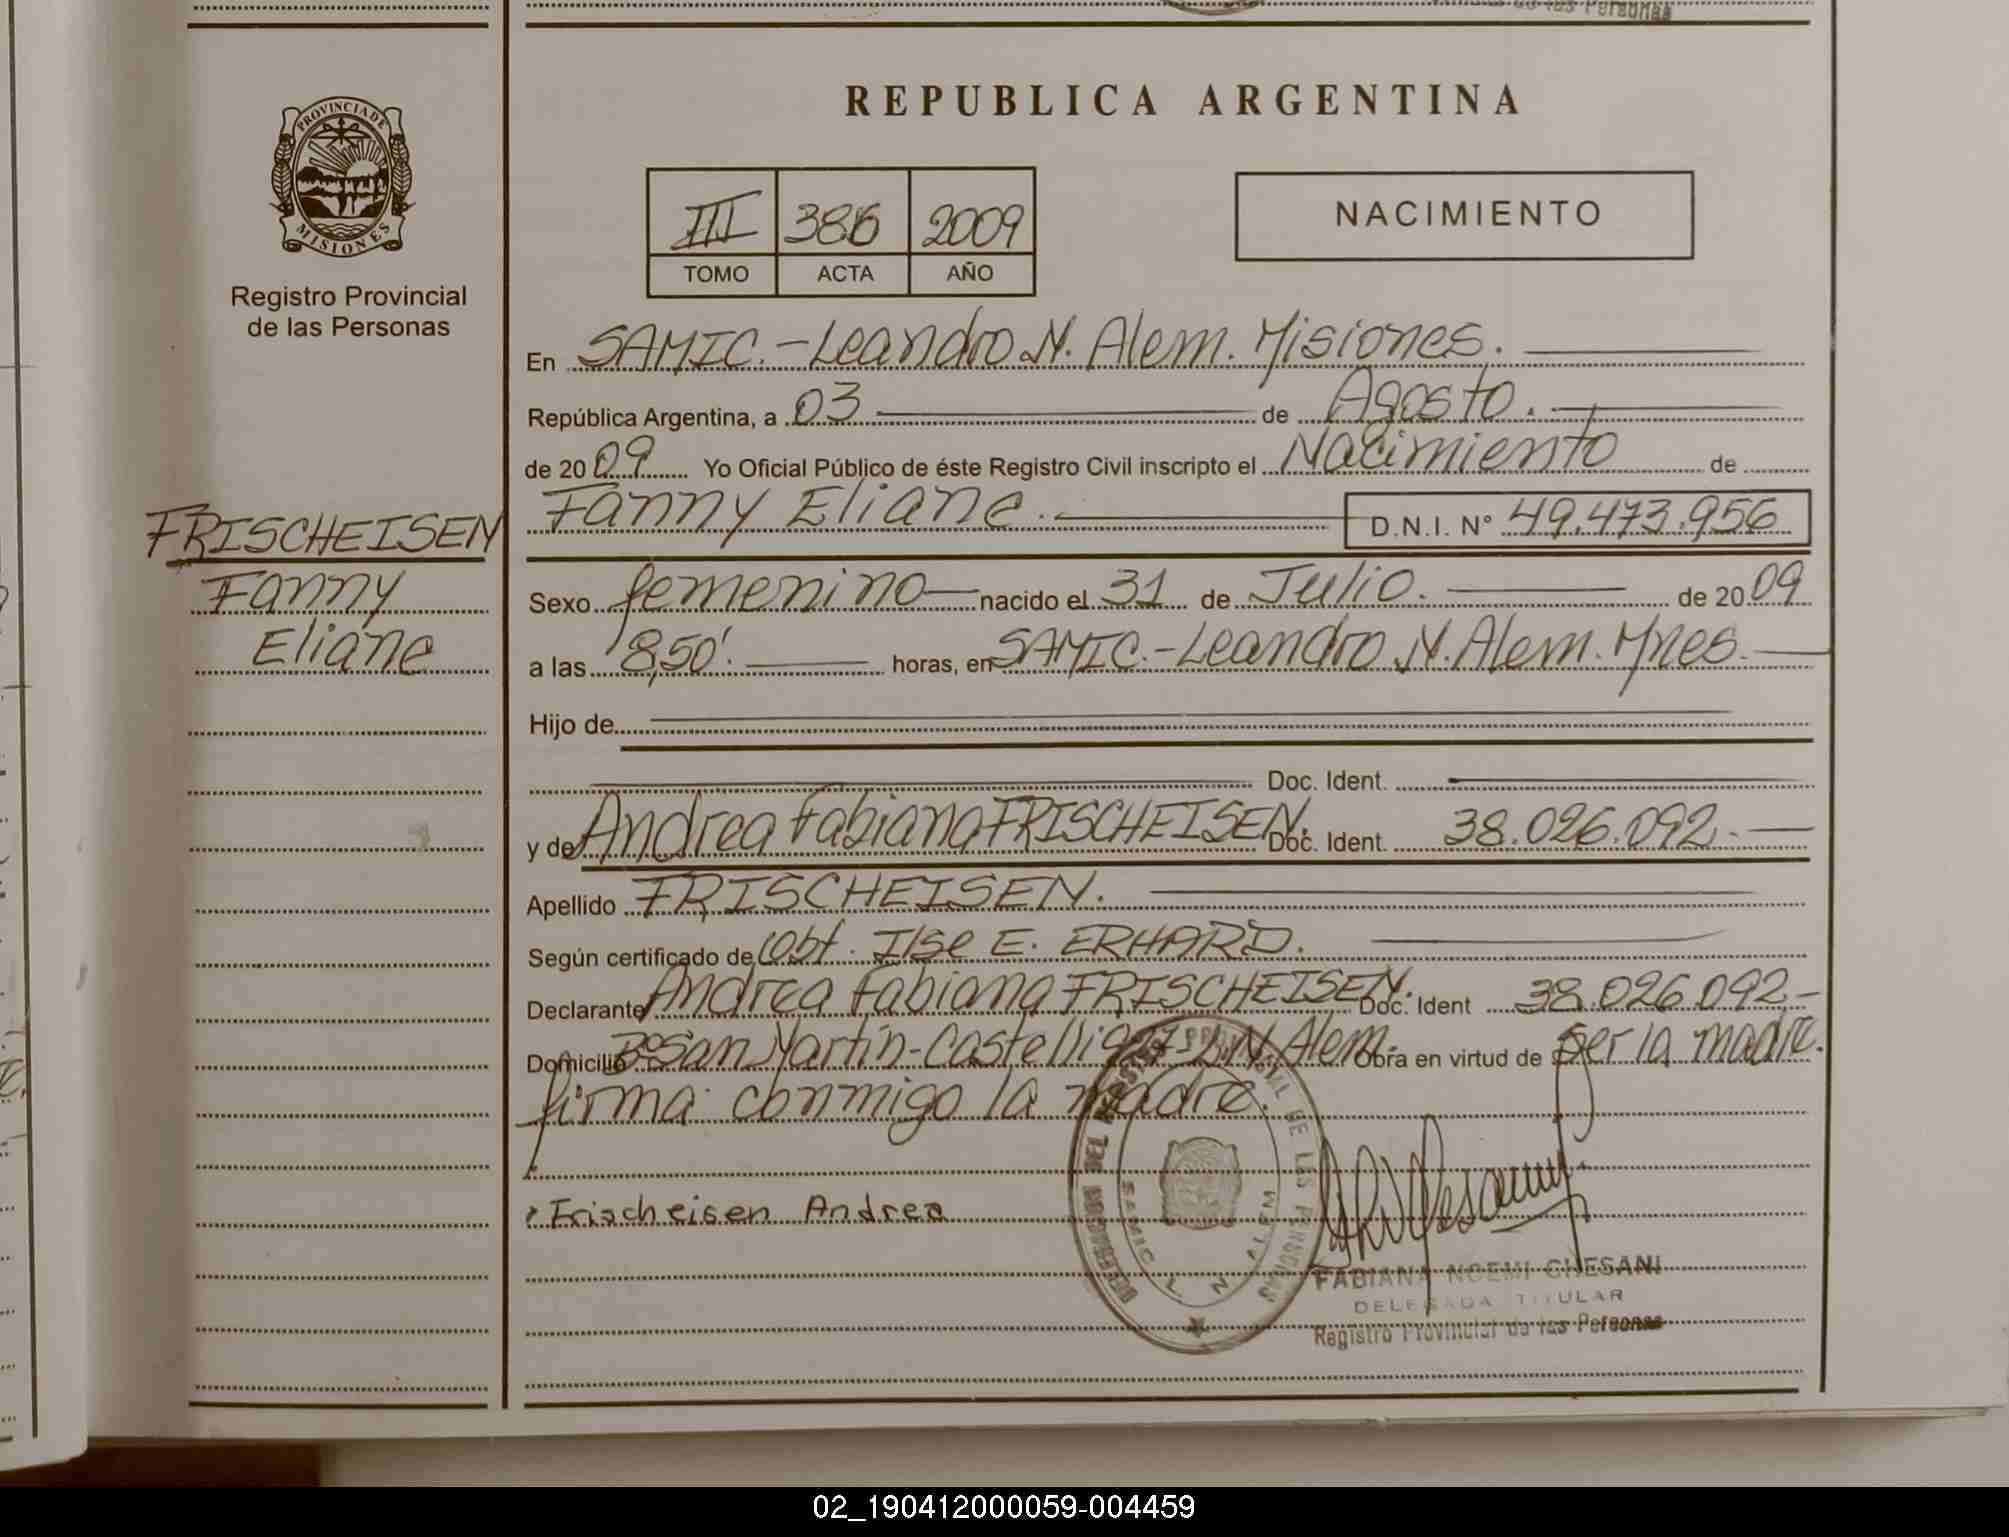 de las Personas
REPUBLICA ARGENTINA
PROVINCIA DE
MISIONES
Registro Provincial
de las Personas
III 386 2009
TOMO ACTA AÑO
NACIMIENTO
En SAMIC.-Leandro N. Alem. Misiones.
República Argentina, a 03 de Agosto.
de 2009 Yo Oficial Público de éste Registro Civil inscripto el Nacimiento de
FRISCHEISEN
Fanny
Eliane
Fanny Eliane. D.N.I. N° 49.473.956
Sexo femenino nacido el 31 de Julio. de 2009
a las 8,50'. horas, en SAMIC.-Leandro N. Alem. Mnes.
Hijo de
Doc. Ident.
y de Andrea Fabiana FRISCHEISEN. Doc. Ident. 38.026.092.
Apellido FRISCHEISEN.
Según certificado de Obt. Ilse E. ERHARD.
Declarante Andrea Fabiana FRISCHEISEN. Doc. Ident 38.026.092-
Domicilio B° San Martín-Castelli L.N. Alem. Obra en virtud de ser la madre.
firma conmigo la madre.
Frischeisen Andrea
DIRECCION DEL REGISTRO PROVINCIAL DE LAS PERSONAS
SAMIC L N ALEM
FABIANA NOEMI CHESANI
DELEGADA TITULAR
Registro Provincial de las Personas
02_190412000059-004459